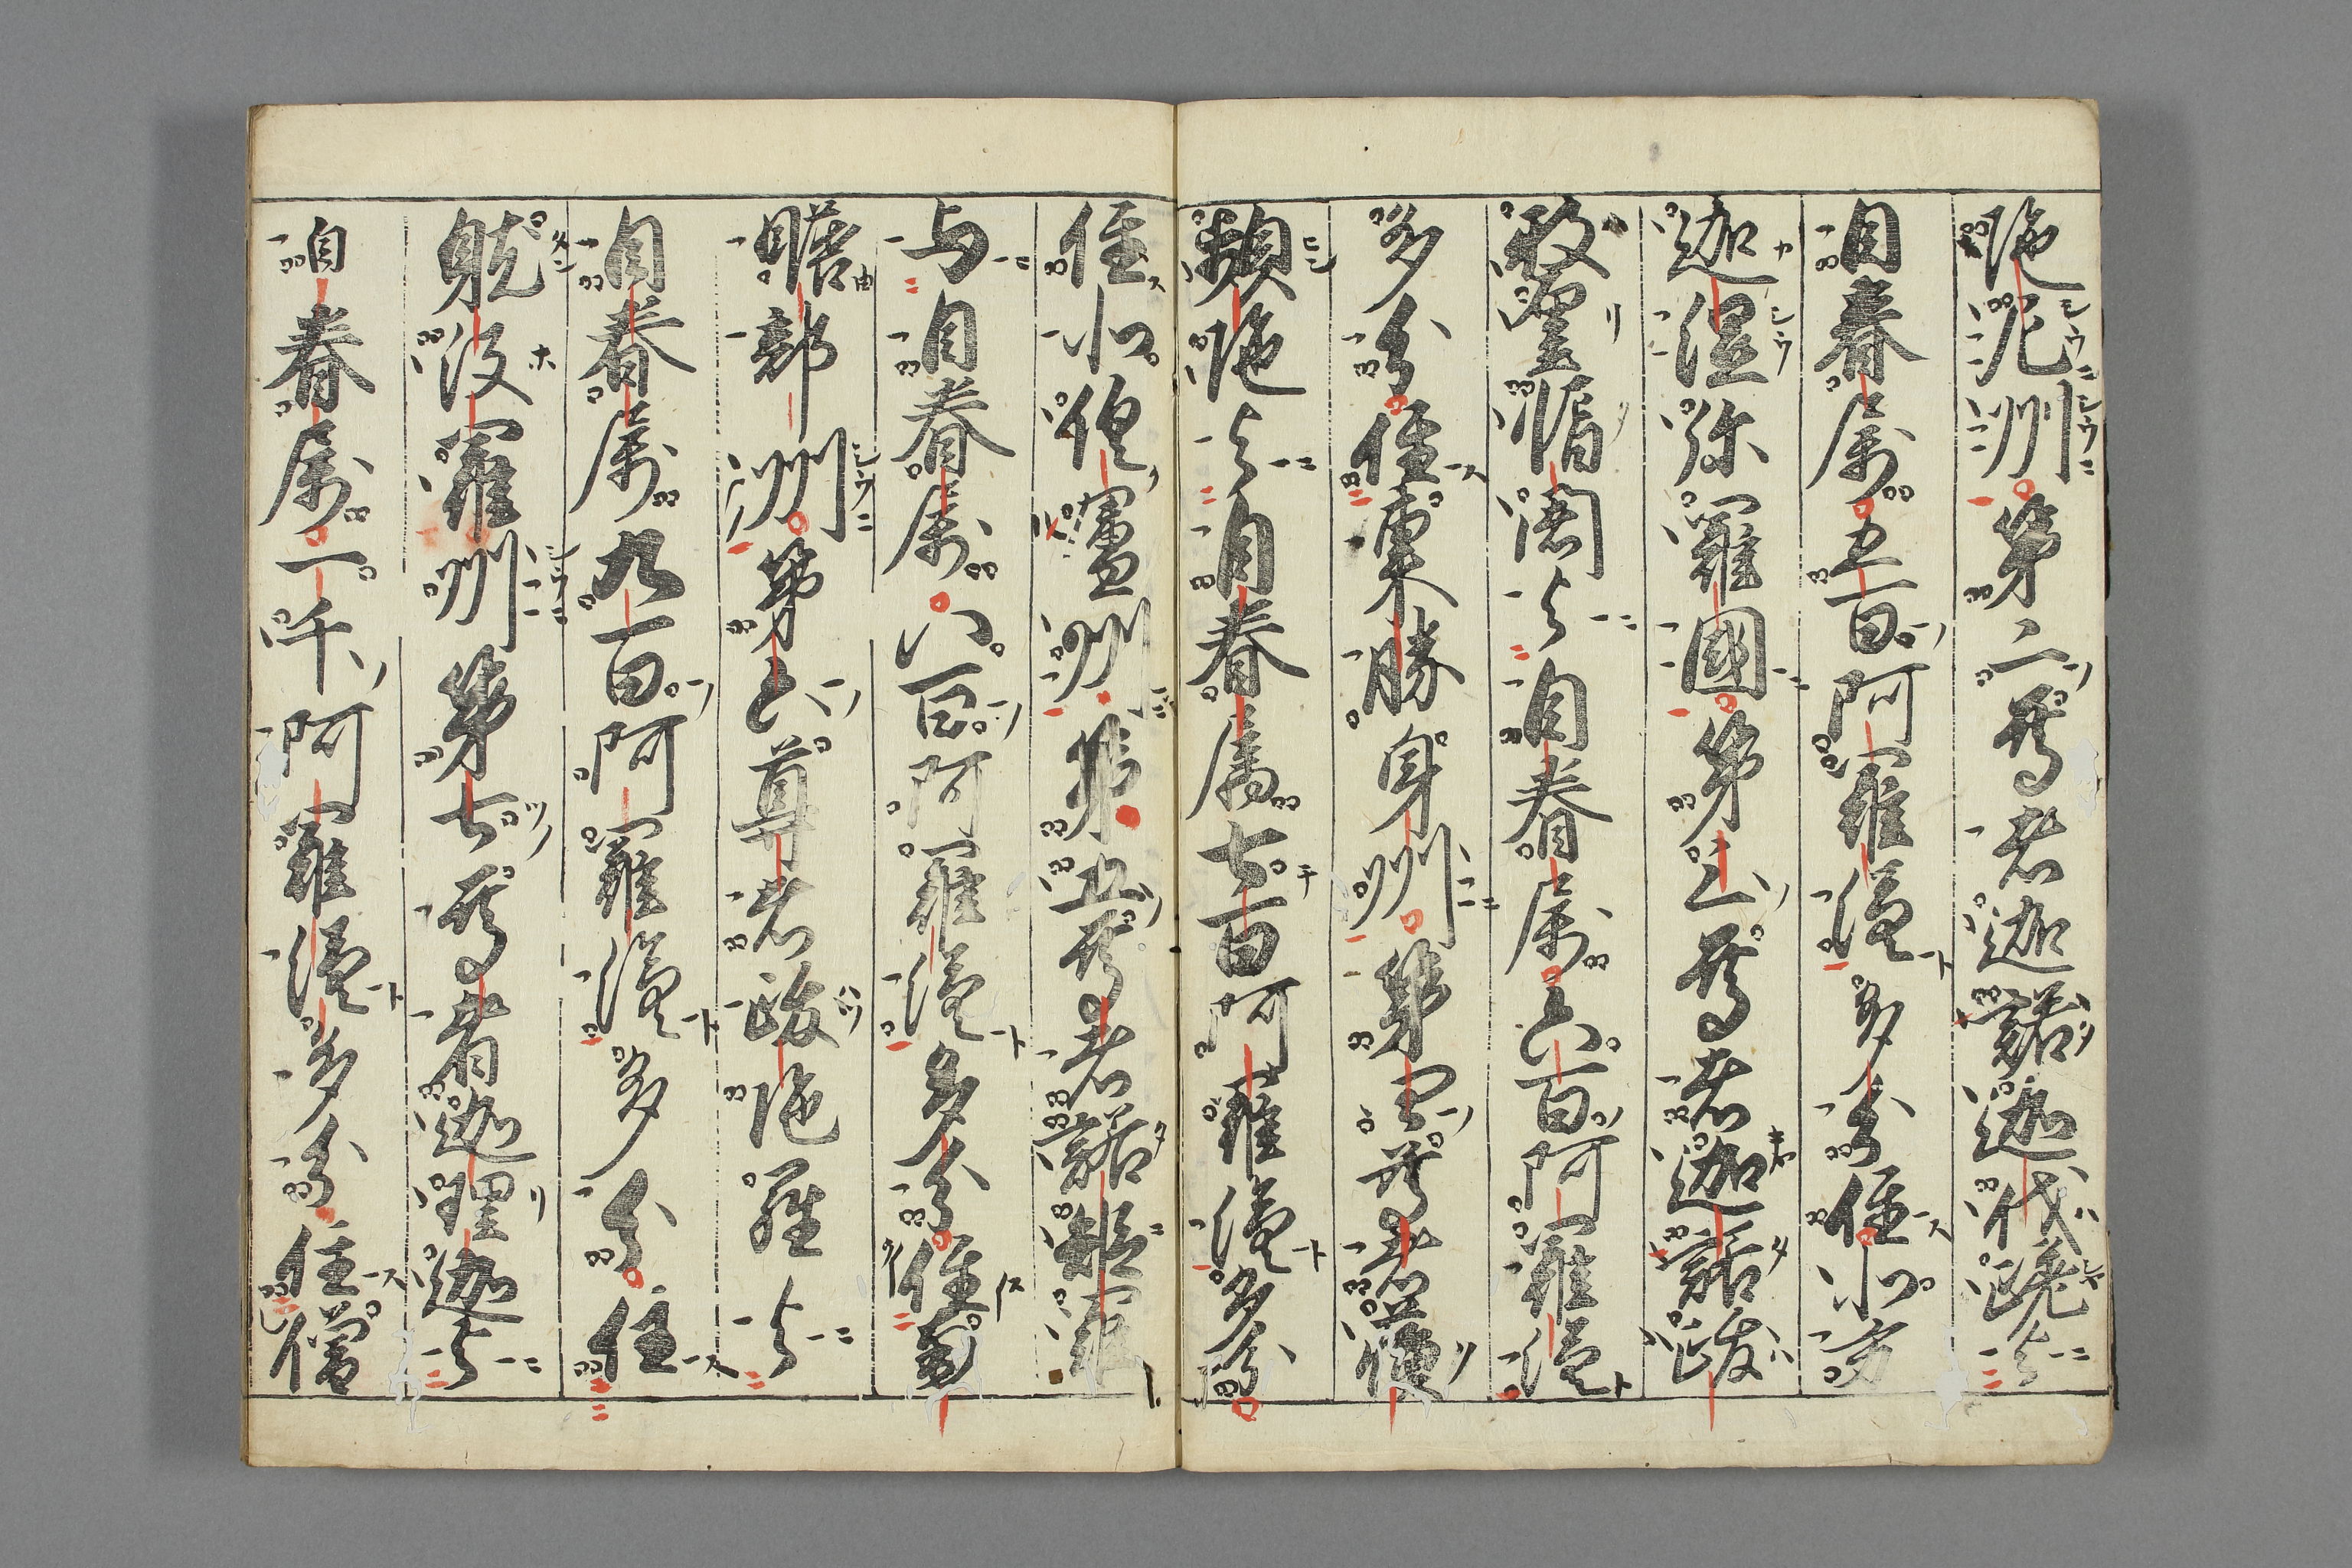 陁泥洲第二尊者迦諾迦伐蹉与
自眷属五百阿羅漢多分住北方
迦湿弥羅國第三尊者迦諾跋
釐惰闍与自眷属六百阿羅漢
多分住東勝身洲第四尊者蘓
頻陁与自眷属七百阿羅漢多分
住北倶盧洲第五尊者諾距羅
与自眷属八百阿羅漢多分住南
贍部洲第六尊者跋陁羅与
自眷属九百阿羅漢多分住
躭没羅洲第七尊者迦理迦与
自眷属一千阿羅漢多分住僧